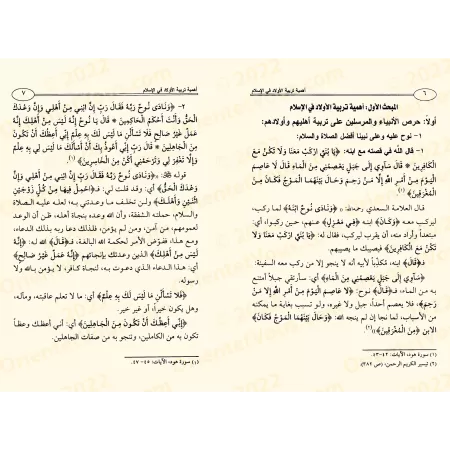 ٦
أهمية تربية الأولاد في الإسلام
المبحث الأول: أهمية تربية الأولاد في الإسلام
أولاً: حرص الأنبياء والمرسلين على تربية أهليهم وأولادهم:
١- نوح عليه وعلى نبينا أفضل الصلاة والسلام:
١- قال الله في قصته مع ابنه: ﴿يَا بُنَيَّ ارْكَبْ مَعَنَا وَلَا تَكُنْ مَعَ
الْكَافِرِينَ * قَالَ سَآوِي إِلَى جَبَلٍ يَعْصِمُنِي مِنَ الْمَاءِ قَالَ لَا عَاصِمَ
الْيَوْمَ مِنْ أَمْرِ اللَّهِ إِلَّا مَنْ رَحِمَ وَحَالَ بَيْنَهُمَا الْمَوْجُ فَكَانَ مِنَ
الْمُغْرَقِينَ﴾(١)
قال العلامة السعدي رحمه الله: ﴿وَنَادَى نُوحٌ ابْنَهُ﴾ لما ركب،
ليركب معه ﴿وَكَانَ﴾ ابنه ﴿فِي مَعْزِلٍ﴾ عنهم، حين ركبوا، أي:
مبتعداً وأراد منه، أن يقرب ليركب، فقال له: ﴿يَا بُنَيَّ ارْكَبْ مَعَنَا وَلَا
تَكُنْ مَعَ الْكَافِرِينَ﴾ فيصيبك ما يصيبهم.
فـ﴿قَالَ﴾ ابنه، مكذباً لأبيه أنه لا ينجو إلا من ركب معه السفينة:
﴿سَآوِي إِلَى جَبَلٍ يَعْصِمُنِي مِنَ الْمَاءِ﴾ أي: سأرتقي جبلاً أمتنع
به من الماء، فـ﴿قَالَ﴾ نوح: ﴿لَا عَاصِمَ الْيَوْمَ مِنْ أَمْرِ اللَّهِ إِلَّا مَنْ
رَحِمَ﴾، فلا يعصم أحداً، جبل ولا غيره، ولو تسبب بغاية ما يمكنه
من الأسباب، لما نجا إن لم ينجه الله: ﴿وَحَالَ بَيْنَهُمَا الْمَوْجُ فَكَانَ﴾
الابن ﴿مِنَ الْمُغْرَقِينَ﴾(٢).
(١) سورة هود، الآيات: ٤٢-٤٣.
(٢) تيسير الكريم الرحمن، (ص ٣٨٢)
أهمية تربية الأولاد في الإسلام
٧
٢- ﴿وَنَادَى نُوحٌ رَبَّهُ فَقَالَ رَبِّ إِنَّ ابْنِي مِنْ أَهْلِي وَإِنَّ وَعْدَكَ
الْحَقُّ وَأَنْتَ أَحْكَمُ الْحَاكِمِينَ * قَالَ يَا نُوحُ إِنَّهُ لَيْسَ مِنْ أَهْلِكَ إِنَّهُ
عَمَلٌ غَيْرُ صَالِحٍ فَلَا تَسْأَلْنِ مَا لَيْسَ لَكَ بِهِ عِلْمٌ إِنِّي أَعِظُكَ أَنْ تَكُونَ
مِنَ الْجَاهِلِينَ * قَالَ رَبِّ إِنِّي أَعُوذُ بِكَ أَنْ أَسْأَلَكَ مَا لَيْسَ لِي بِهِ عِلْمٌ
وَإِلَّا تَغْفِرْ لِي وَتَرْحَمْنِي أَكُنْ مِنَ الْخَاسِرِينَ﴾(١).
قوله: ﴿وَنَادَى نُوحٌ رَبَّهُ فَقَالَ رَبِّ إِنَّ ابْنِي مِنْ أَهْلِي وَإِنَّ
وَعْدَكَ الْحَقُّ﴾ أي: وقد قلت لي: فـ﴿احْمِلْ فِيهَا مِنْ كُلٍّ زَوْجَيْنِ
اثْنَيْنِ وَأَهْلَكَ﴾ ولن تخلف ما وعدتني به، لعله عليه الصلاة
والسلام، حملته الشفقة، وأن الله وعده بنجاة أهله، ظن أن الوعد
لعمومهم، من آمن، ومن لم يؤمن، فلذلك دعا ربه بذلك الدعاء،
ومع هذا، ففوض الأمر لحكمة الله البالغة، فـ﴿قَالَ﴾ الله له: ﴿إِنَّهُ
لَيْسَ مِنْ أَهْلِكَ﴾ الذين وعدتك بإنجائهم ﴿إِنَّهُ عَمَلٌ غَيْرُ صَالِحٍ﴾
أي: هذا الدعاء الذي دعوت به، لنجاة كافر، لا يؤمن بالله ولا
رسوله.
﴿فَلَا تَسْأَلْنِ مَا لَيْسَ لَكَ بِهِ عِلْمٌ﴾ أي: ما لا تعلم عاقبته، ومآله،
وهل يكون خيراً، أو غير خير.
﴿إِنِّي أَعِظُكَ أَنْ تَكُونَ مِنَ الْجَاهِلِينَ﴾ أي: أني أعظك وعظاً
تكون به من الكاملين، وتنجو به من صفات الجاهلين.
(١) سورة هود، الآيات: ٤٥-٤٧.